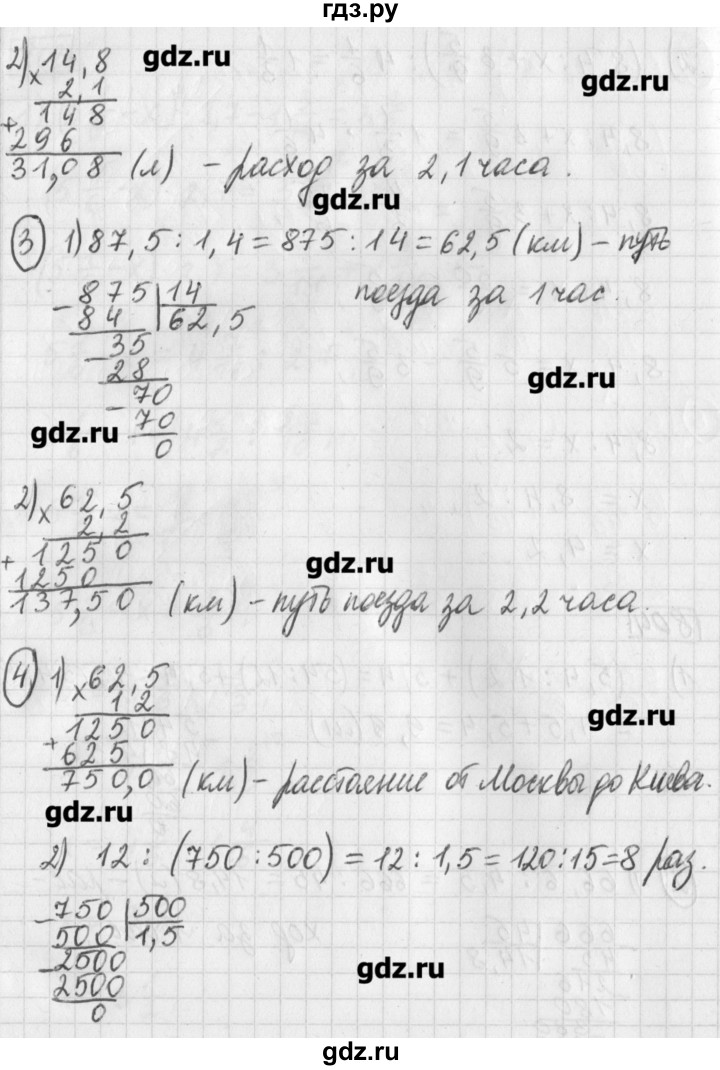 гдз.ру
2) × 14,8
2,1
+ 148
296
31,08 (л) - расход за 2,1 часа.
3 1) 87,5 : 1,4 = 875 : 14 = 62,5 (км) - путь
поезда за 1 час.
- 875 | 14
84 | 62,5
- 35
28
- 70
70
0
2) × 62,5
2,2
+ 1250
1250
137,50 (км) - путь поезда за 2,2 часа.
4 1) × 62,5
12
+ 1250
625
750,0 (км) - расстояние от Москвы до Киева.
2) 12 : (750 : 500) = 12 : 1,5 = 120 : 15 = 8 раз.
- 750 | 500
500 | 1,5
- 2500
2500
0
gdz.ru
gdz.ru
gdz.ru
gdz.ru
gdz.ru
gdz.ru
gdz.ru
gdz.ru
gdz.ru
gdz.ru